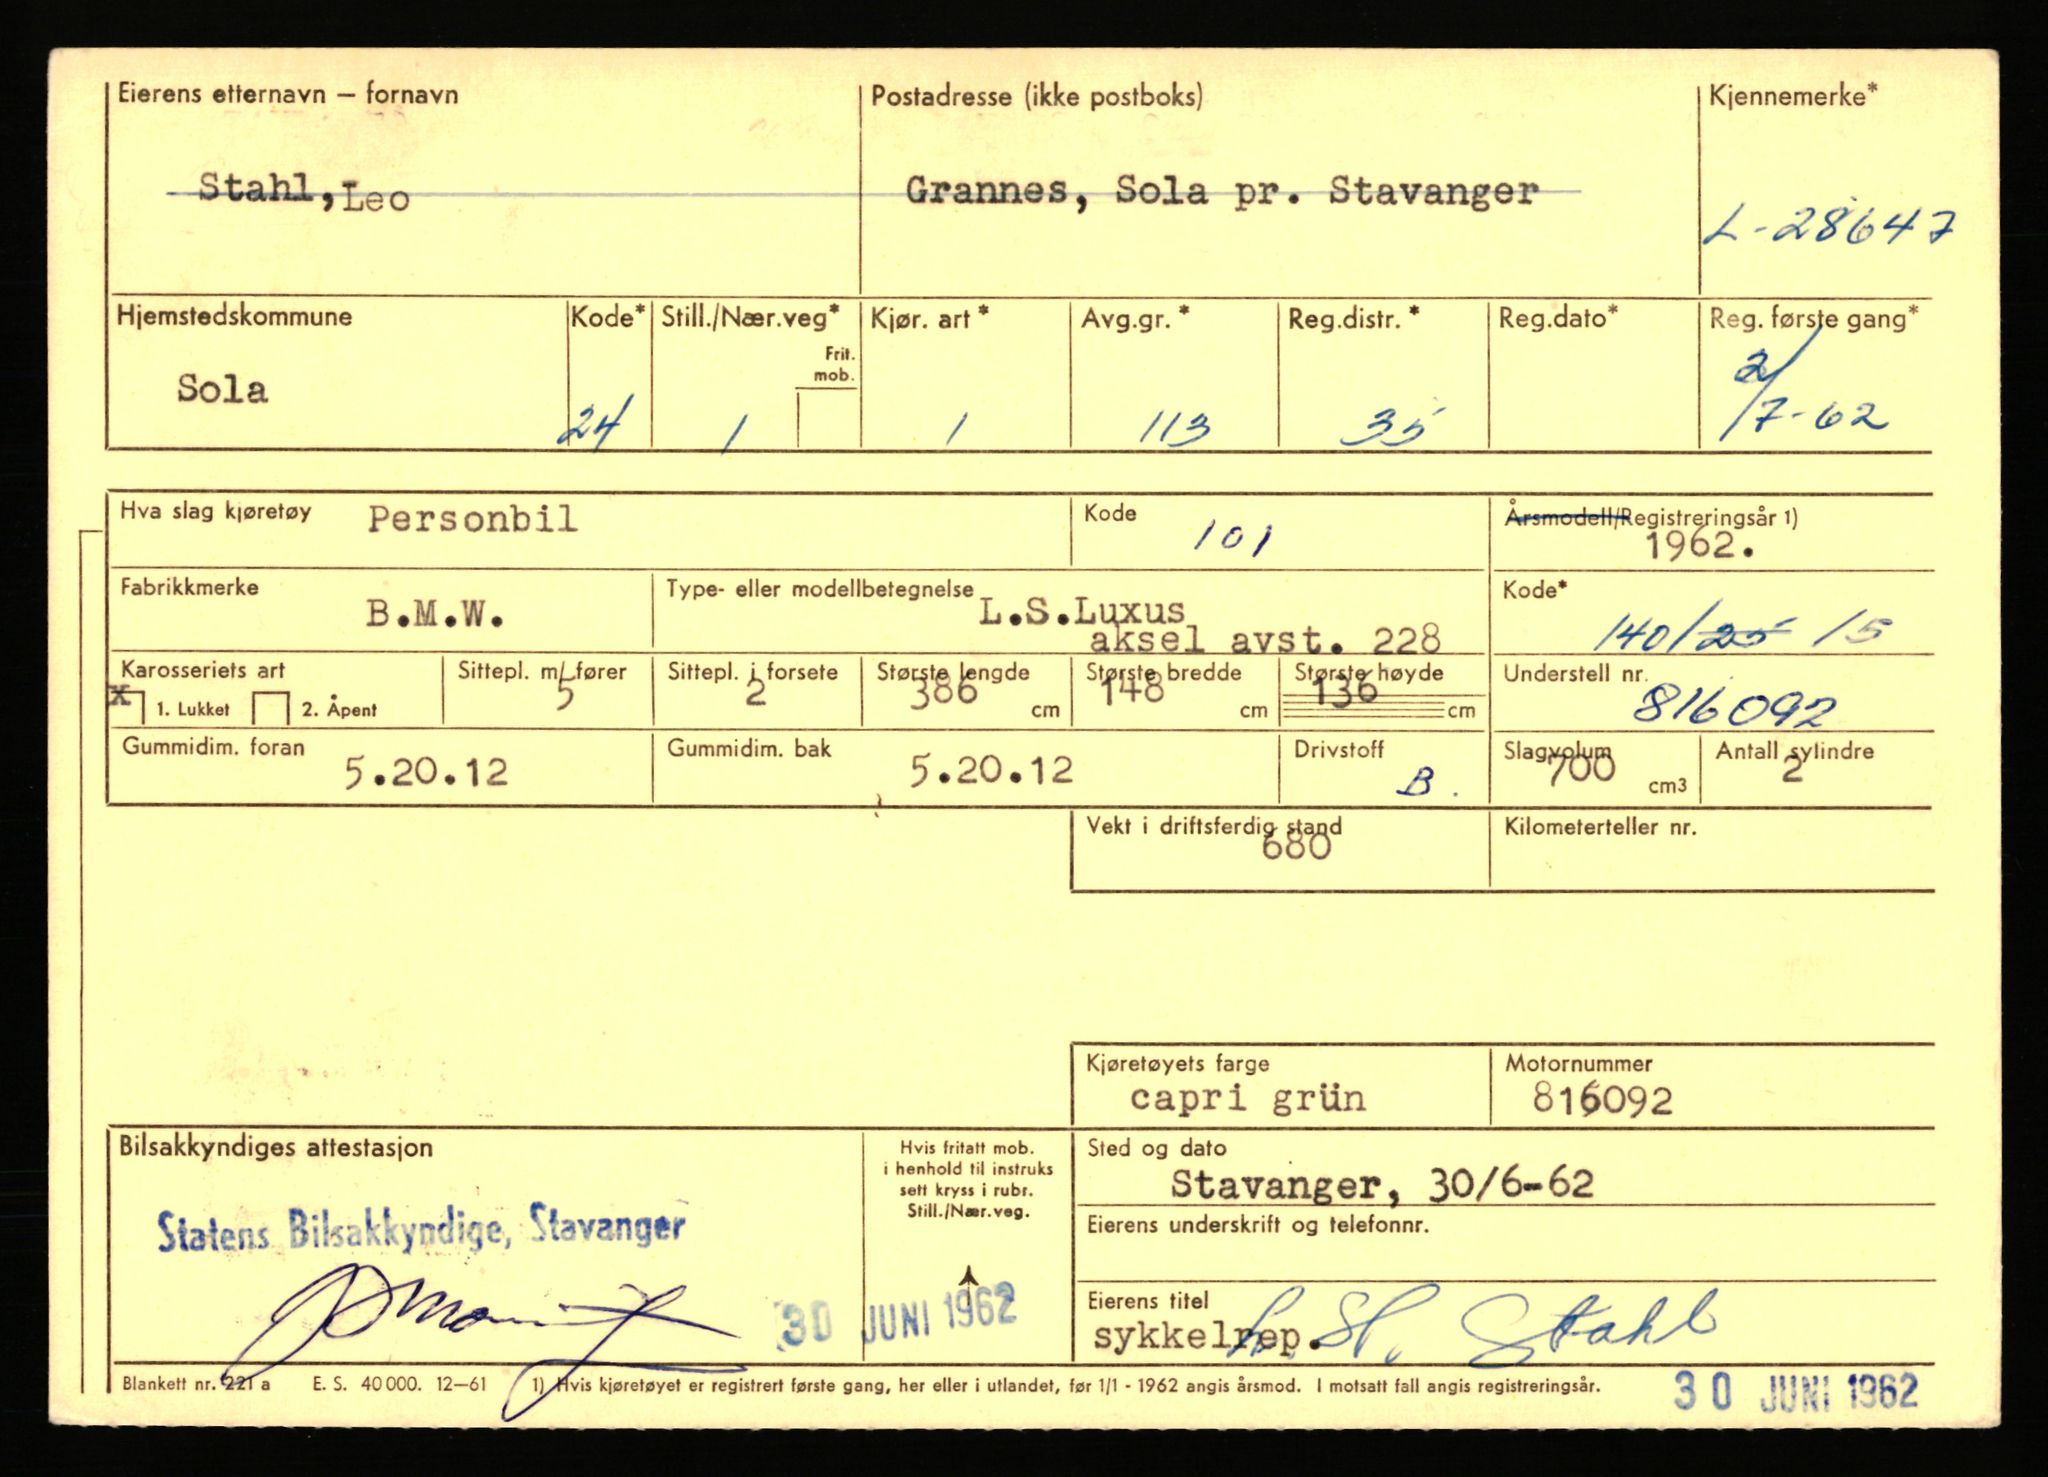 Eierens etternavn — fornavn
Postadresse (ikke postboks)
Kjennemerke*
Stahl, Leo
Grannes, Sola pr. Stavanger
L-28647
Hjemstedskommune
Kode*
Still./Nær.veg*
Frit. mob.
Kjør. art*
Avg.gr.*
Reg.distr.*
Reg.dato*
Reg. første gang*
Sola
24
1
1
113
35
2/7-62
Hva slag kjøretøy
Personbil
Kode
101
Årsmodell/Registreringsår 1)
1962.
Fabrikkmerke
B.M.W.
Type- eller modellbetegnelse
L.S.Luxus
aksel avst. 228
Kode*
140/25 15
Karosseriets art
x 1. Lukket 2. Åpent
Sittepl. m/ fører
5
Sittepl. i forsete
2
Største lengde
386 cm
Største bredde
148 cm
Største høyde
136 cm
Understell nr.
816092
Gummidim. foran
5.20.12
Gummidim. bak
5.20.12
Drivstoff
B.
Slagvolum
700 cm3
Antall sylindre
2
Vekt i driftsferdig stand
680
Kilometerteller nr.
Kjøretøyets farge
capri grün
Motornummer
816092
Bilsakkyndiges attestasjon
Statens Bilsakkyndige, Stavanger
Hvis fritatt mob.
i henhold til instruks
sett kryss i rubr.
Still./Nær.veg.
30 JUNI 1962
Sted og dato
Stavanger, 30/6-62
Eierens underskrift og telefonnr.
Eierens titel
sykkelrep.
Stahl
Blankett nr. 221 a E. S. 40 000. 12—61 1) Hvis kjøretøyet er registrert første gang, her eller i utlandet, før 1/1 - 1962 angis årsmod. I motsatt fall angis registreringsår.
30 JUNI 1962